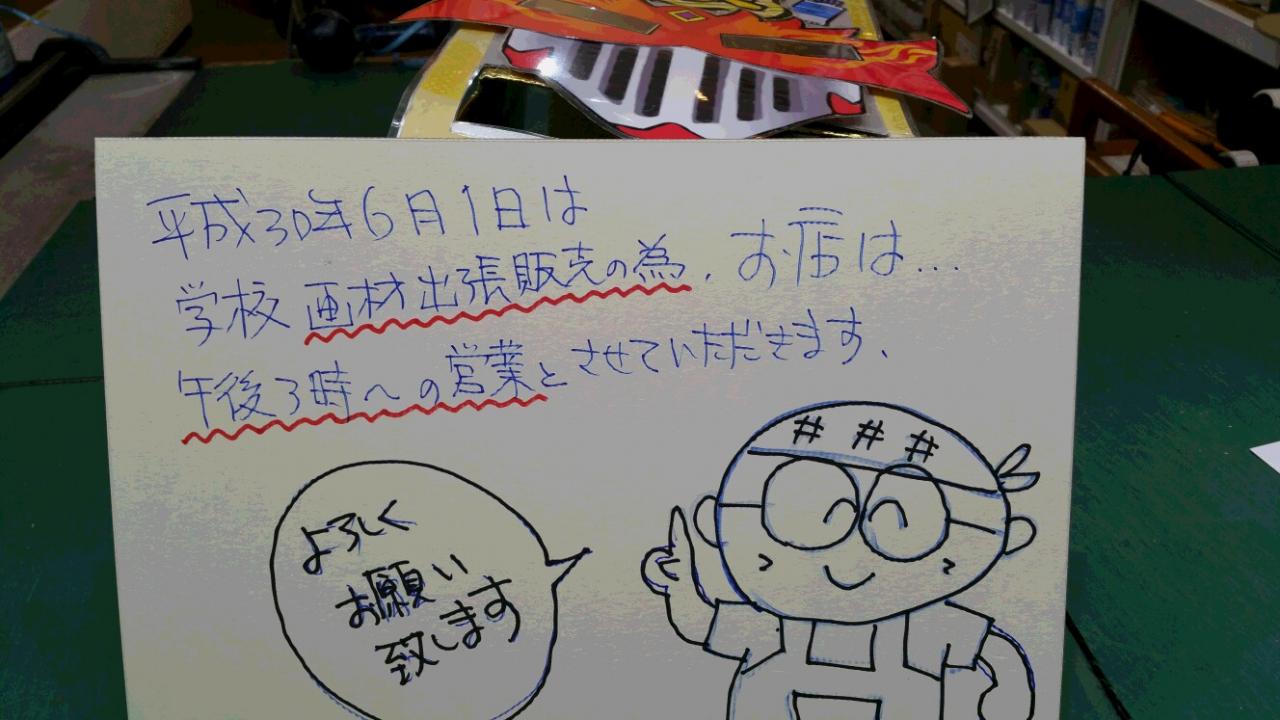 平成30年6月1日は
学校 画材出張販売の為、お店は...
午後3時〜の営業とさせていただきます、
よろしく
お願い
致します